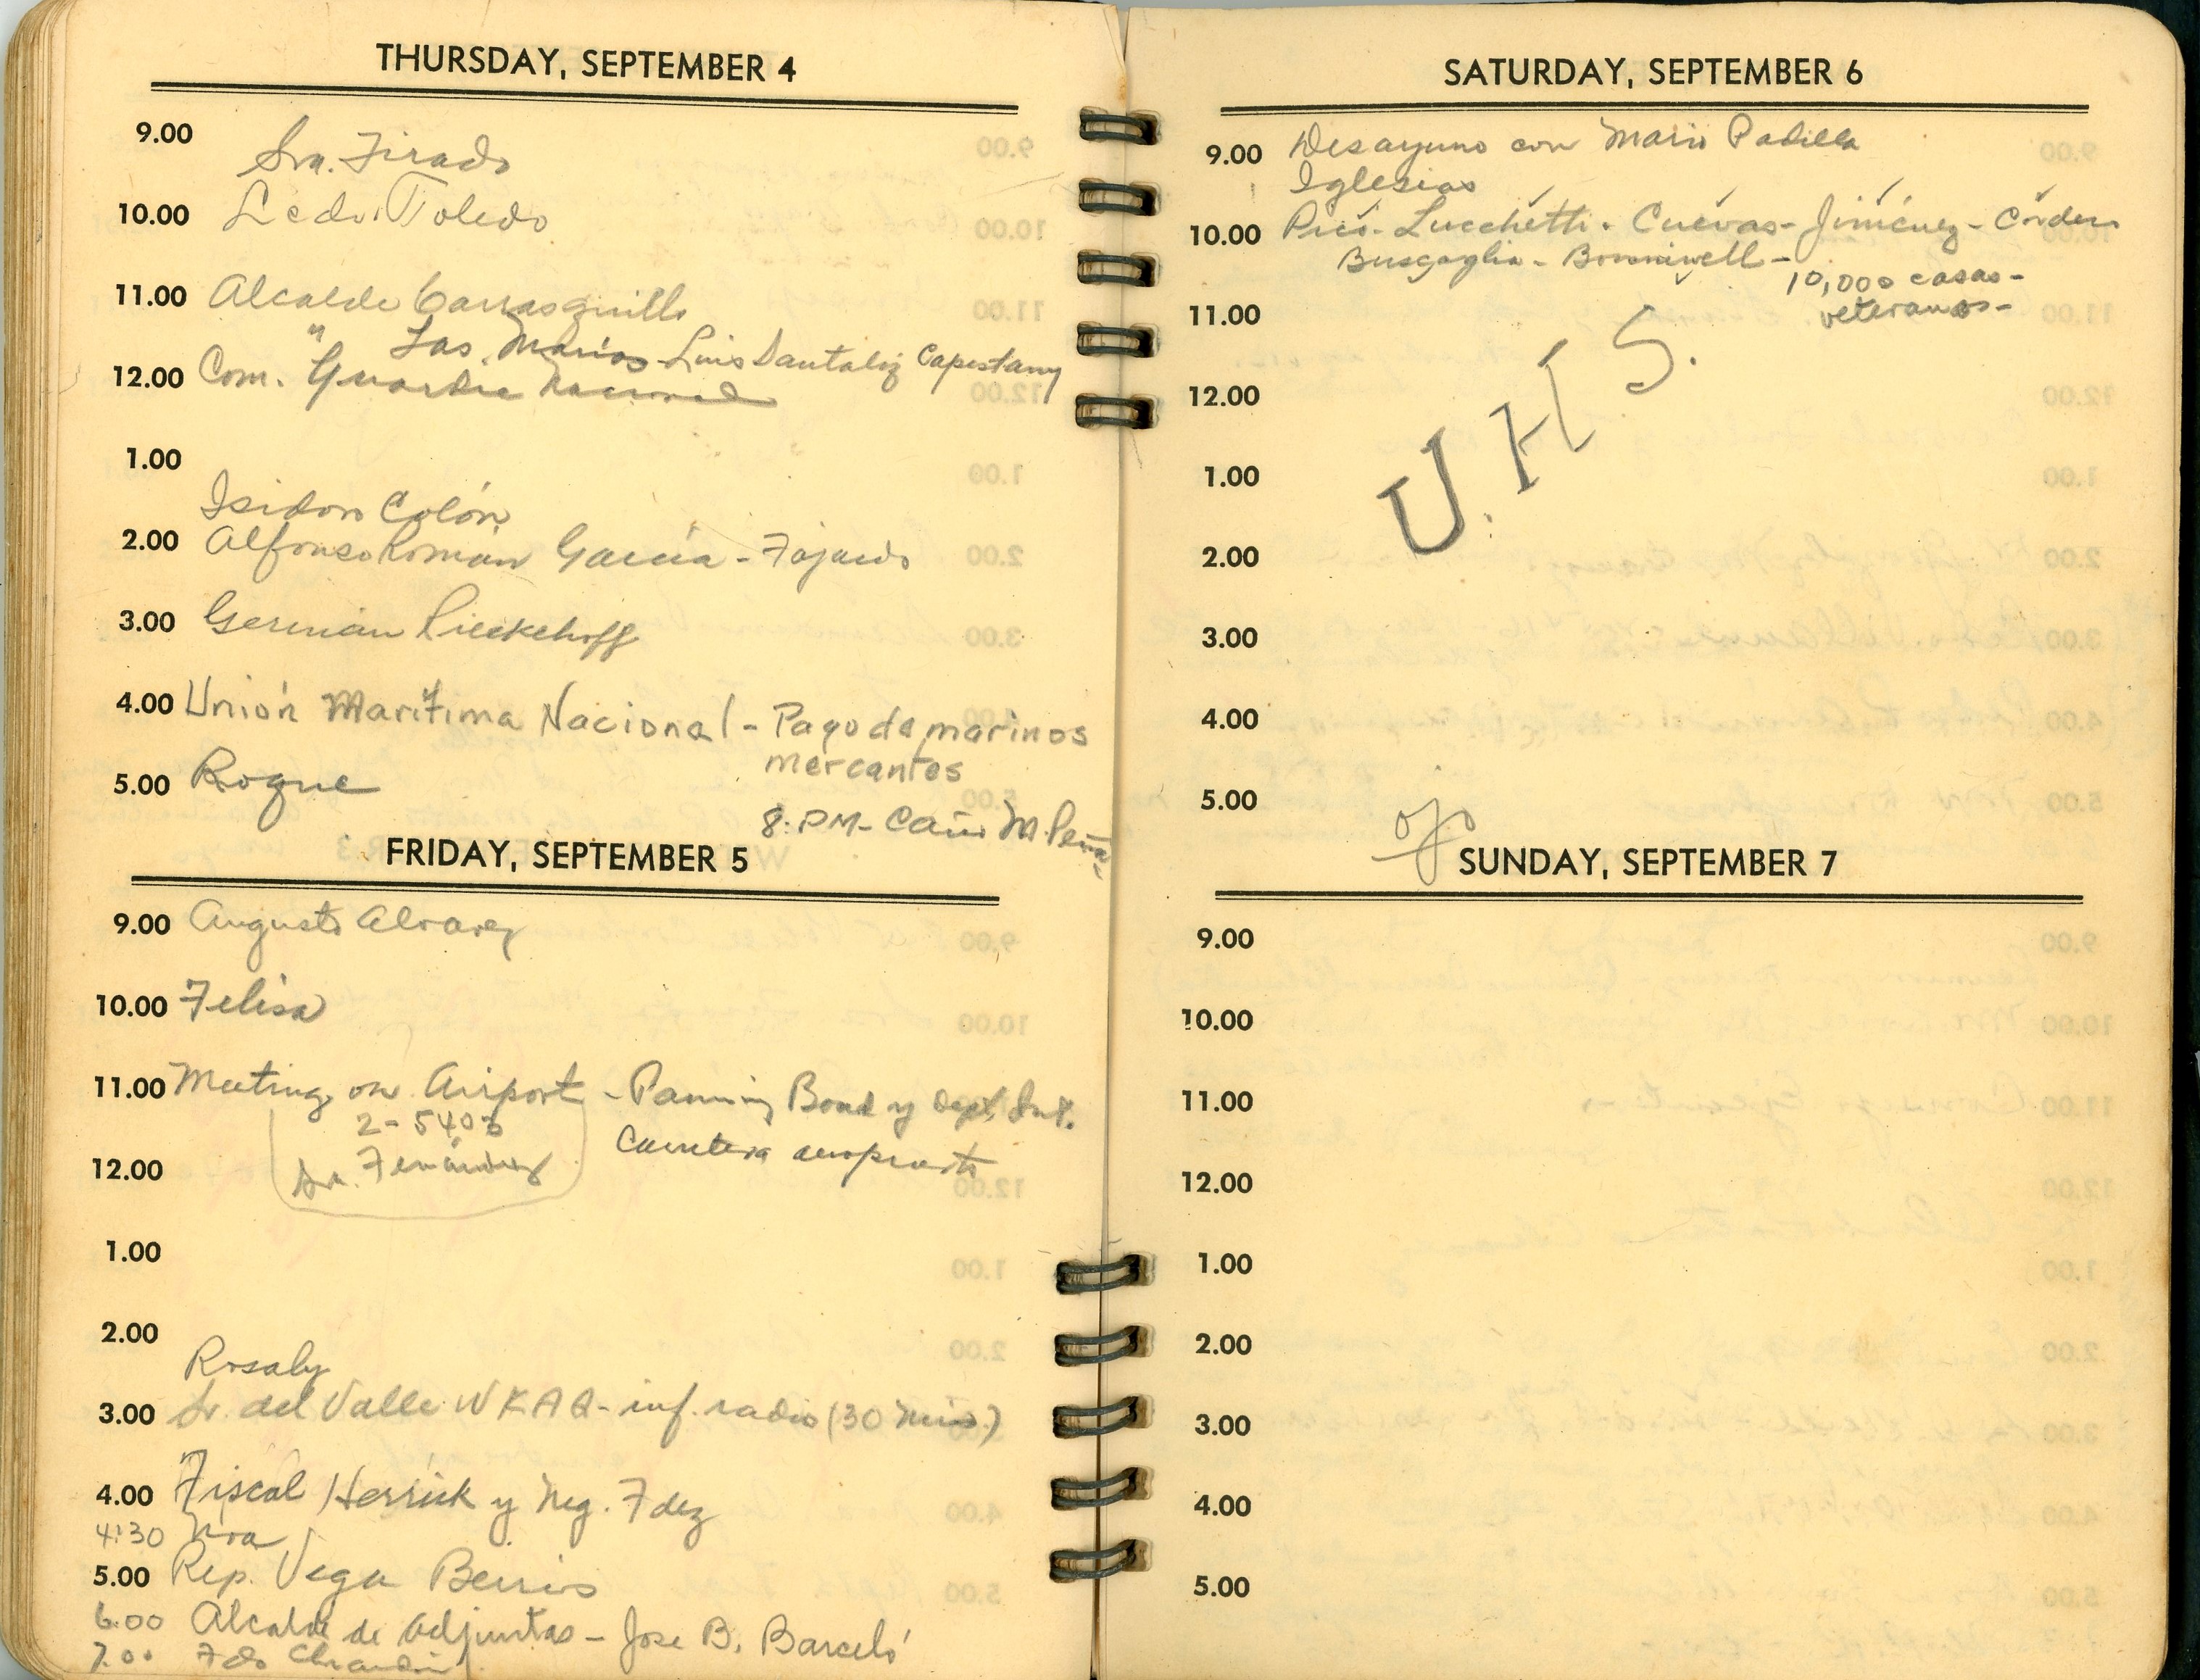 THURSDAY, SEPTEMBER 4
9.00
Sra. Tirado
10.00 Ledo. Toledo
11.00 Alcalde Carrasquillo
" Las Marias - Luis Santaliz Capestany
12.00 Com. Guardia Nacional
1.00
Isidoro Colón
2.00 Alfonso Román García - Fajardo
3.00 Germán Rieckehoff
4.00 Unión Marítima Nacional - Pago de marinos
mercantes
5.00 Roque
8:PM - Caño M. Peña
FRIDAY, SEPTEMBER 5
9.00 Augusto Alvarez
10.00 Felisa
11.00 Meeting on Airport - Panning Board y Dept. Int.
2-5403
Carretera aeropuerto
12.00 Sr. Fernández
1.00
2.00
Rosaly
3.00 Sr. del Valle WKAQ - inf. radio (30 mins.)
4.00 Fiscal Herrick y Neg. Fdez
4:30
5.00 Rep. Vega Berrios
6.00 Alcalde de Adjuntas - Jose B. Barceló
7.00 Fdo
SATURDAY, SEPTEMBER 6
9.00 Desayuno con Mario Padilla
Iglesias
10.00 Picó - Lucchetti - Cuevas - Jiménez - Cordero
Buscaglia - Bonniwell -
10,000 casas -
veteranos -
11.00
U.H.S.
12.00
1.00
2.00
3.00
4.00
5.00
ojo
SUNDAY, SEPTEMBER 7
9.00
10.00
11.00
12.00
1.00
2.00
3.00
4.00
5.00